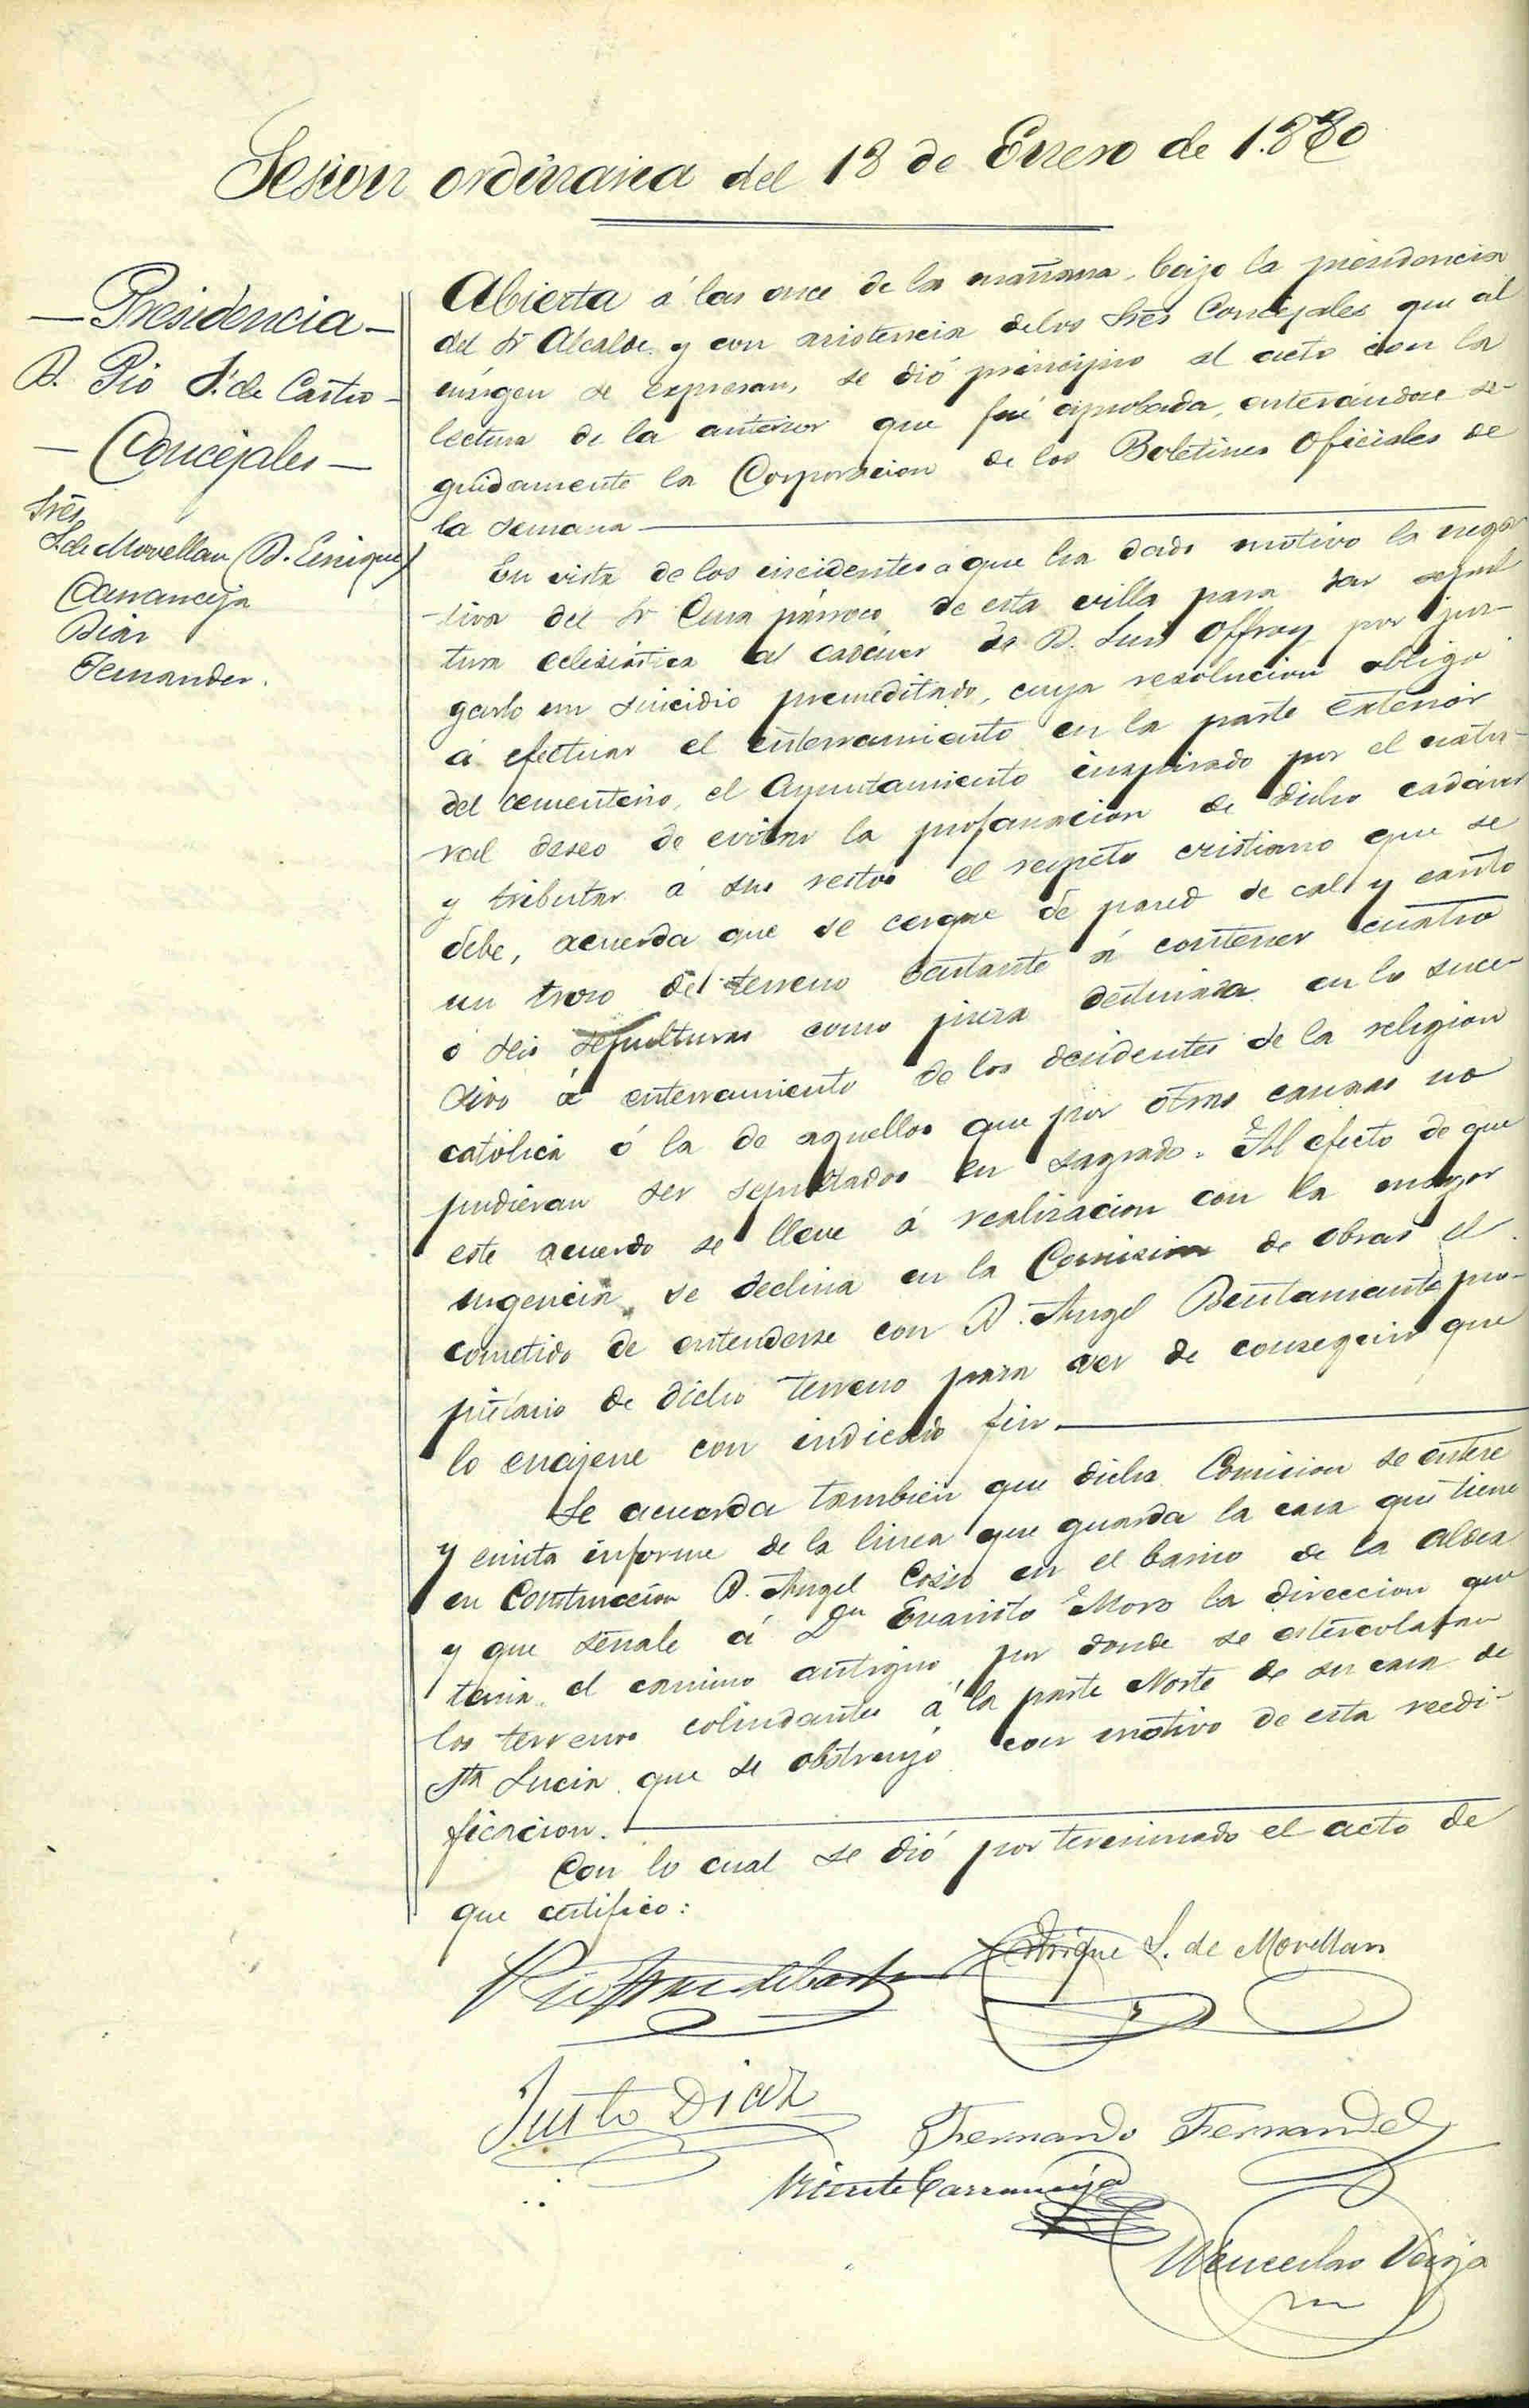 Sesion ordinaria del 18 de Enero de 1.880
— Presidencia —
D. Pio S. de Castro —
— Concejales —
Sres
S. de Movellan (D. Enrique)
Carranceja
Diaz
Fernandez.
Abierta á las once de la mañana, bajo la presidencia
del Sr Alcalde y con asistencia de los Sres Concejales que al
márgen se expresan, se dió principio al acto con la
lectura de la anterior que fué aprobada, enterándose se-
guidamente la Corporacion de los Boletines Oficiales de
la semana
En vista de los incidentes a que ha dado motivo la nega
-tiva del Sr Cura párroco de esta villa para dar sepul
tura eclesiástica al cadáver de D. Luis Offray por juz-
garlo un suicidio premeditado, cuya resolucion obligó
á efectuar el enterramiento en la parte exterior
del cementerio, el Ayuntamiento inspirado por el natu-
ral deseo de evitar la profanacion de dicho cadáver
y tributar á sus restos el respeto cristiano que se
debe, acuerda que se cerque de pared de cal y canto
un trozo del terreno bastante á contener cuatro
ó seis sepulturas como pieza destinada en lo suce-
sivo á enterramiento de los disidentes de la religion
católica ó la de aquellos que por otras causas no
pudieran ser sepultados en sagrado. Al efecto de que
este acuerdo se lleve á realizacion con la mayor
urgencia, se declina en la Comision de obras el
cometido de entenderse con D. Angel Bustamante pro-
pietario de dicho terreno para ver de conseguir que
lo enajene con indicado fin.
Se acuerda tambien que dicha Comision se entere
y emita informe de la linea que guarda la casa que tiene
en Construccion D. Angel Cosio en el barrio de la aldea
y que señale á Dn Evaristo Moro la direccion que
tenia el camino antiguo por donde se estercolaban
los terrenos colindantes á la parte Norte de su casa de
Sta Lucia que se obstruyó con motivo de esta reedi-
ficacion.
Con lo cual se dió por terminado el acto de
que certifico:
Enrique S. de Movellan
Justo Diaz
Fernando Fernandez
Vicente Carranceja
Wenceslao Veija